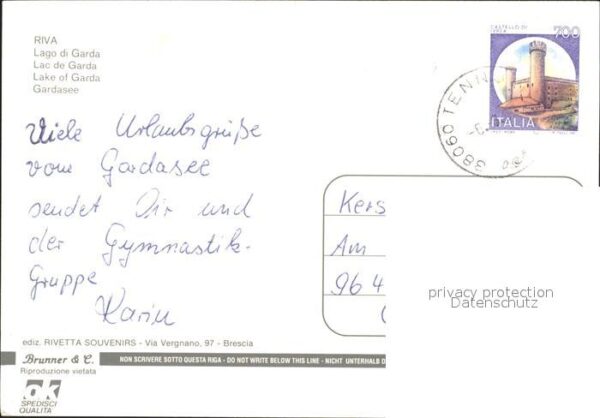 RIVA
Lago di Garda
Lac de Garda
Lake of Garda
Gardasee
CASTELLO DI
700
ITALIA
38060 TENN
Viele Urlaubsgrüße
vom Gardasee
sendet Dir und
der Gymnastik-
Gruppe
Karin
Kers
Am
96 4
privacy protection
Datenschutz
ediz. RIVETTA SOUVENIRS - Via Vergnano, 97 - Brescia
Brunner & C.
NON SCRIVERE SOTTO QUESTA RIGA - DO NOT WRITE BELOW THIS LINE - NICHT UNTERHALB D
Riproduzione vietata
ok
SPEDISCI
QUALITÀ